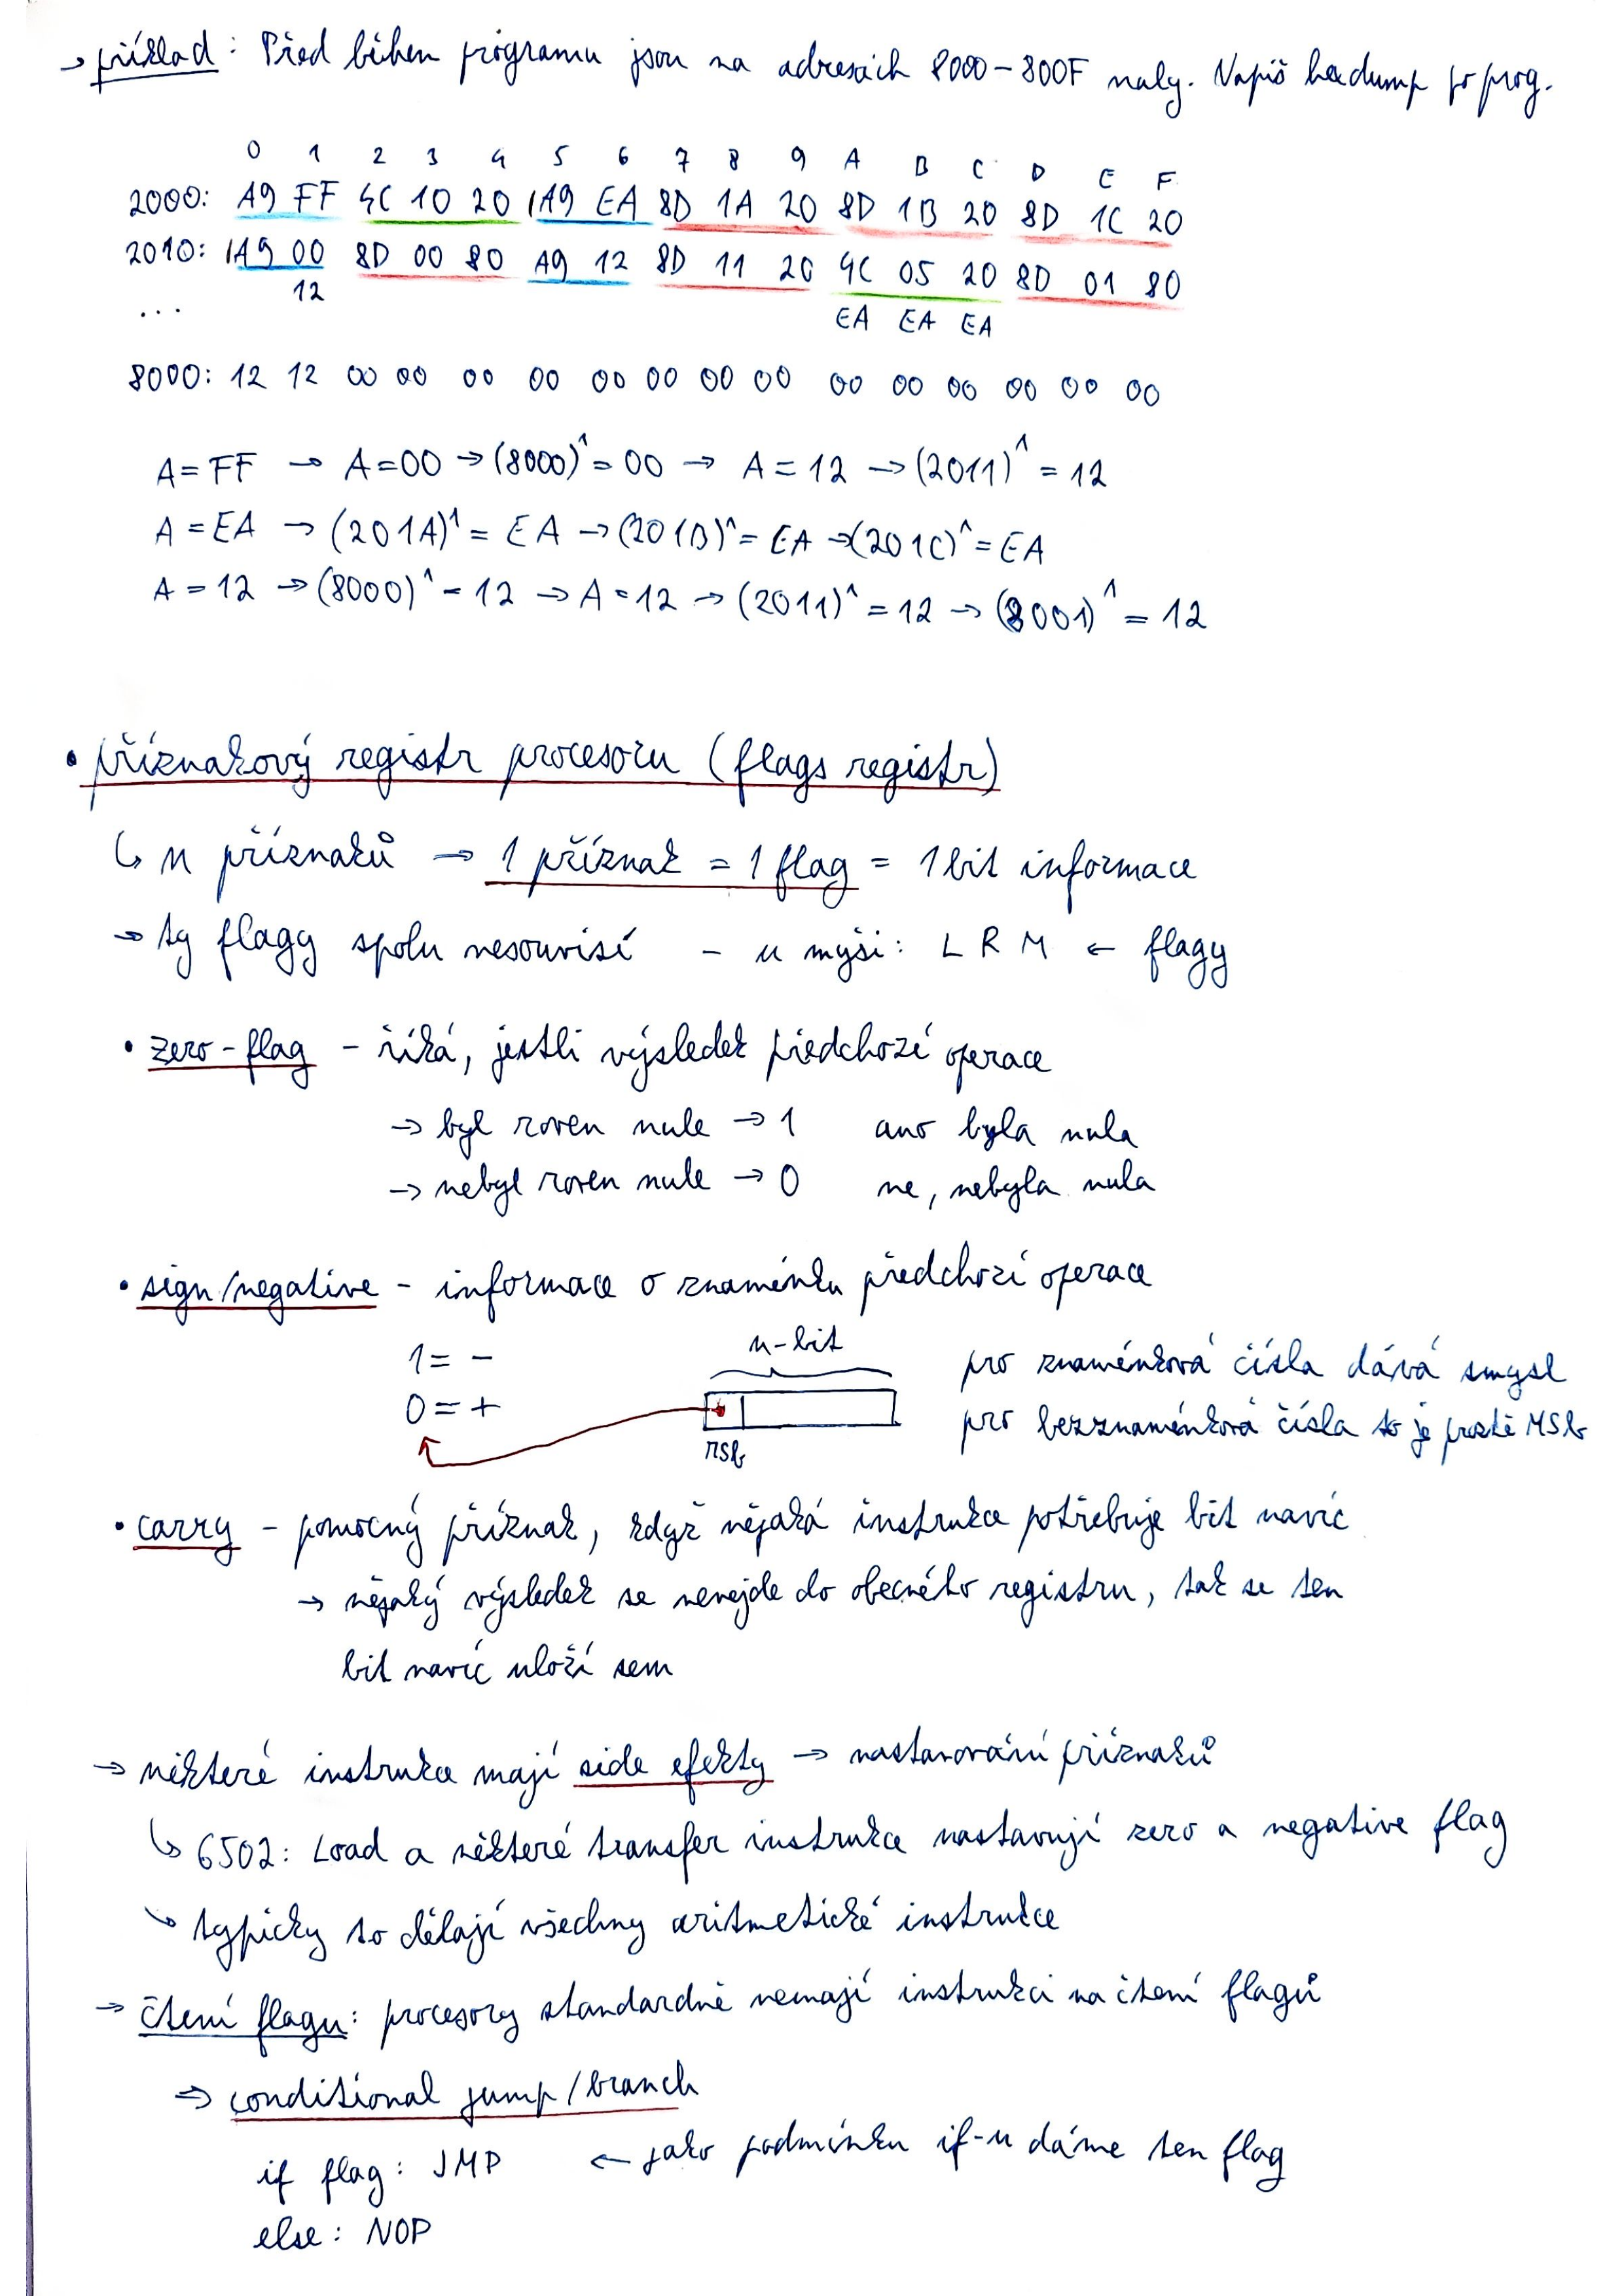 → příklad: Před během programu jsou na adresách 8000-800F nuly. Napiš hexdump po prog.
0 1 2 3 4 5 6 7 8 9 A B C D E F
2000: A9 FF 4C 10 20 A9 EA 8D 1A 20 8D 1B 20 8D 1C 20
2010: A9 00 8D 00 80 A9 12 8D 11 20 4C 05 20 8D 01 80
12 EA EA EA
...
8000: 12 12 00 00 00 00 00 00 00 00 00 00 00 00 00 00
A=FF → A=00 → (8000)^1 = 00 → A = 12 → (2011)^1 = 12
A = EA → (201A)^1 = EA → (201B)^1 = EA → (201C)^1 = EA
A = 12 → (8000)^1 = 12 → A = 12 → (2011)^1 = 12 → (8001)^1 = 12
• příznakový registr procesoru (flags registr)
↳ n příznaků → 1 příznak = 1 flag = 1 bit informace
→ ty flagy spolu nesouvisí - u myši: L R M ← flagy
• zero-flag - říká, jestli výsledek předchozí operace
→ byl roven nule → 1 ano byla nula
→ nebyl roven nule → 0 ne, nebyla nula
• sign/negative - informace o znaménku předchozí operace
1 = - n-bit pro znaménková čísla dává smysl
0 = + pro bezznaménková čísla to je prostě MSb
MSb
• carry - pomocný příznak, když nějaká instrukce potřebuje bit navíc
→ nějaký výsledek se nevejde do obecného registru, tak se ten
bit navíc uloží sem
→ některé instrukce mají side efekty → nastavování příznaků
↳ 6502: Load a některé transfer instrukce nastavují zero a negative flag
↳ typicky to dělají všechny aritmetické instrukce
→ čtení flagu: procesory standardně nemají instrukci na čtení flagů
⇒ conditional jump/branch
if flag: JMP ← jako podmínku if-u dáme ten flag
else: NOP